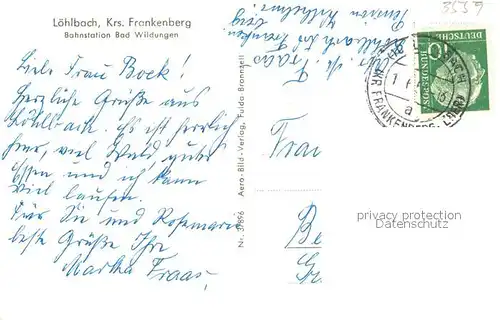 Löhlbach, Krs. Frankenberg
Bahnstation Bad Wildungen
Liebe Frau Bock!
Herzliche Grüße aus
Löhlbach. Es ist herrlich
hier, viel Wald, gutes
Essen und ich kann
viel laufen.
Für Sie und Rosemarie
beste Grüße Ihre
Martha Fraas.
Nr. 37896 Aero-Bild-Verlag, Fulda-Bronnzell
Pension Wilhelmi
Löhlbach
Fraas
DEUTSCHE
BUNDESPOST
10
(KR FRANKENBERG, EDER)
a
Frau
Be
privacy protection
Datenschutz